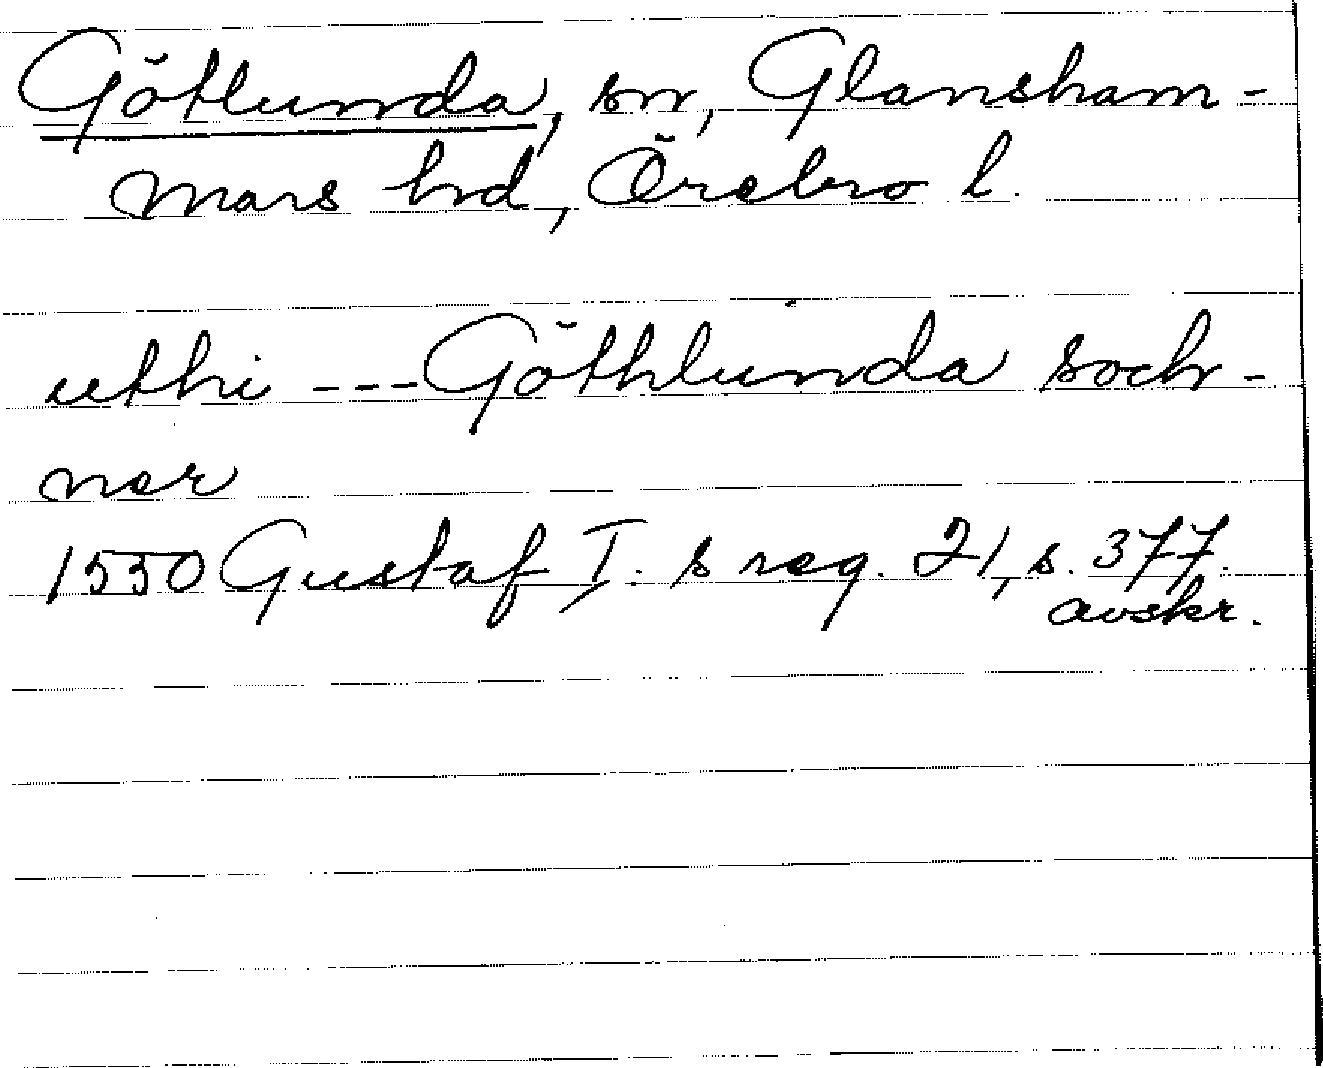 Götlunda, sn, Glansham-
mars hd, Örebro l.
uthi --- Göthlunda sock-
ner
1550 Gustaf I:s reg. 21, s. 377.
avskr.